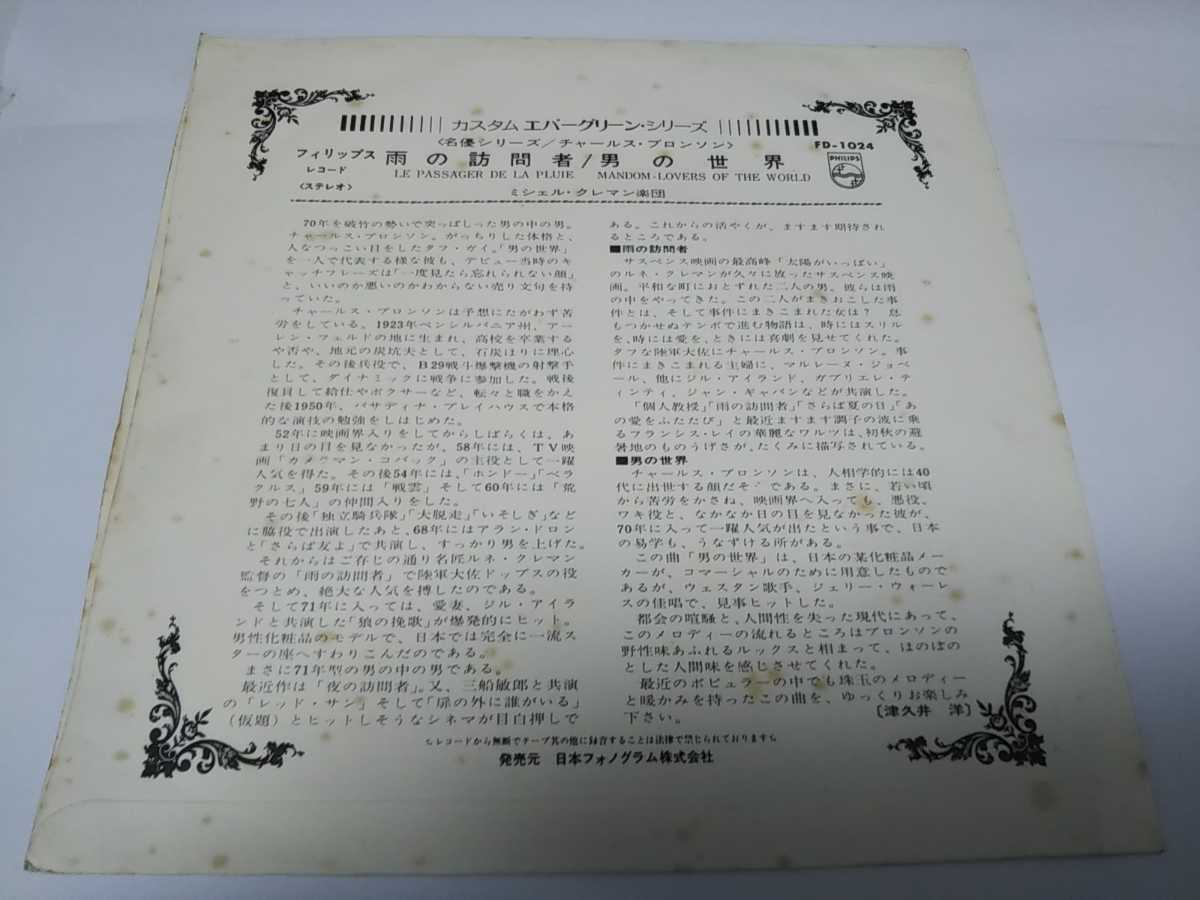 カスタム エバーグリーン・シリーズ
〈名優シリーズ/チャールス・ブロンソン〉
FD-1024
フィリップス
レコード
〈ステレオ〉
雨の訪問者/男の世界
LE PASSAGER DE LA PLUIE MANDOM-LOVERS OF THE WORLD
PHILIPS
ミシェル・クレマン楽団
70年を破竹の勢いで突っぱしった男の中の男。
チャールス・ブロンソン。がっちりした体格と、
人なつっこい目をしたタフ・ガイ。「男の世界」
を一人で代表する様な彼も、デビュー当時のキ
ャッチフレーズは「一度見たら忘れられない顔」
と、いいのか悪いのかわからない売り文句を持
っていた。
チャールス・ブロンソンは予想にたがわず苦
労をしている。1923年ペンシルバニア州、アー
レン・フェルドの地に生まれ、高校を卒業する
や否や、地元の炭坑夫として、石炭ほりに埋心
した。その後兵役で、B29戦斗爆撃機の射撃手
として、ダイナミックに戦争に参加した。戦後
復員して給仕やボクサーなど、転々と職をかえ
た後1950年、パサディナ・プレイハウスで本格
的な演技の勉強をしはじめた。
52年に映画界入りをしてからしばらくは、あ
まり日の目を見なかったが、58年には、TV映
画「カメラマン・コバック」の主役として一躍
人気を得た。その後54年には、「ホンドー」「ベラ
クルス」59年には「戦雲」そして60年には「荒
野の七人」の仲間入りをした。
その後「独立騎兵隊」「大脱走」「いそしぎ」など
に脇役で出演したあと、68年にはアラン・ドロン
と「さらば友よ」で共演し、すっかり男を上げた。
それからはご存じの通り名匠ルネ・クレマン
監督の「雨の訪問者」で陸軍大佐ドップスの役
をつとめ、絶大な人気を博したのである。
そして71年に入っては、愛妻、ジル・アイラ
ンドと共演した「狼の挽歌」が爆発的にヒット。
男性化粧品のモデルで、日本では完全に一流ス
ターの座へすわりこんだのである。
まさに71年型の男の中の男である。
最近作は「夜の訪問者」。又、三船敏郎と共演
の「レッド・サン」そして「扉の外に誰がいる」
(仮題)とヒットしそうなシネマが目白押しで
ある。これからの活やくが、ますます期待され
るところである。
■雨の訪問者
サスペンス映画の最高峰「太陽がいっぱい」
のルネ・クレマンが久々に放ったサスペンス映
画。平和な町におとずれた二人の男。彼らは雨
の中をやってきた。この二人がまきおこした事
件とは、そして事件にまきこまれた女は? 息
もつかせぬテンポで進む物語は、時にはスリル
を、時には愛を、ときには喜劇を見せてくれた。
タフな陸軍大佐にチャールス・ブロンソン。事
件にまきこまれる主婦に、マルレーヌ・ジョベ
ール、他にジル・アイランド、ガブリエレ・テ
ィンティ、ジャン・ギャバンなどが共演した。
「個人教授」「雨の訪問者」「さらば夏の日」「あ
の愛をふたたび」と最近ますます調子の波に乗
るフランシス・レイの華麗なワルツは、初秋の避
暑地のものうげさが、たくみに描写されている。
■男の世界
チャールス・ブロンソンは、人相学的には40
代に出世する顔だそうである。まさに、若い頃
から苦労をかさね、映画界へ入っても、悪役、
ワキ役と、なかなか日の目を見なかった彼が、
70年に入って一躍人気が出たという事で、日本
の易学も、うなずける所がある。
この曲「男の世界」は、日本の某化粧品メー
カーが、コマーシャルのために用意したもので
あるが、ウェスタン歌手、ジェリー・ウォーレ
スの佳唱で、見事ヒットした。
都会の喧騒と、人間性を失った現代にあって、
このメロディーの流れるところはブロンソンの
野性味あふれるルックスと相まって、ほのぼの
とした人間味を感じさせてくれた。
最近のポピュラーの中でも珠玉のメロディー
と暖かみを持ったこの曲を、ゆっくりお楽しみ
下さい。
〔津久井 洋〕
レコードから無断でテープ其の他に録音することは法律で禁じられております
発売元 日本フォノグラム株式会社